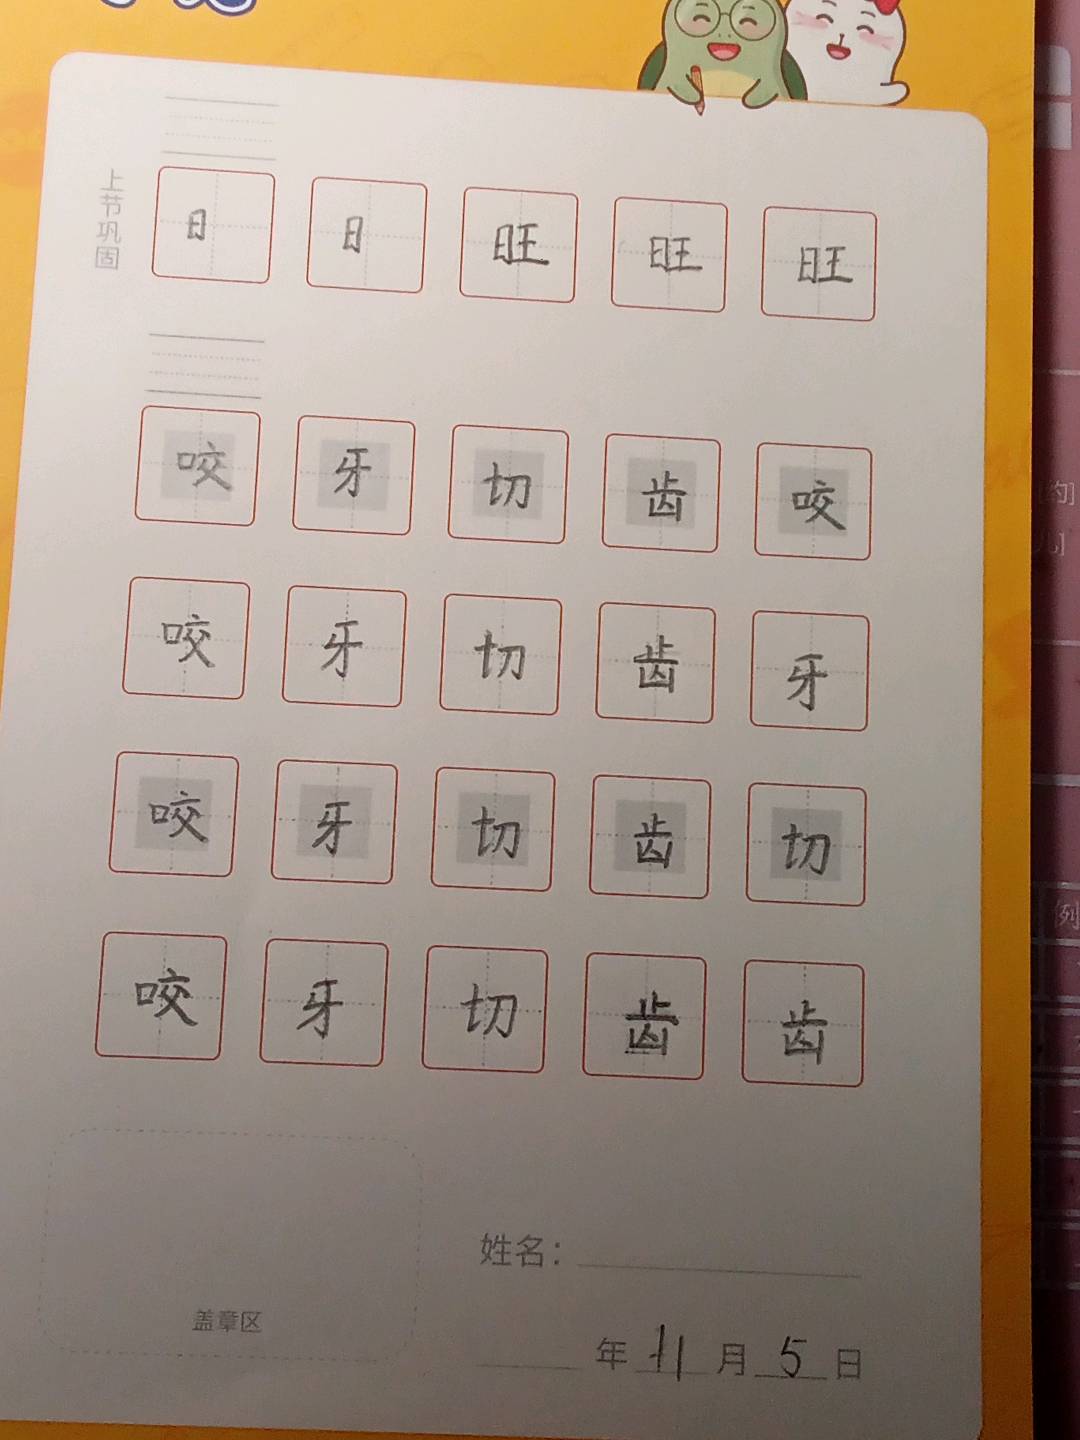 上节巩固
日 日 旺 旺 旺
咬 牙 切 齿 咬
咬 牙 切 齿 牙
咬 牙 切 齿 切
咬 牙 切 齿 齿
姓名：
盖章区
年 11 月 5 日
约]
儿]
例